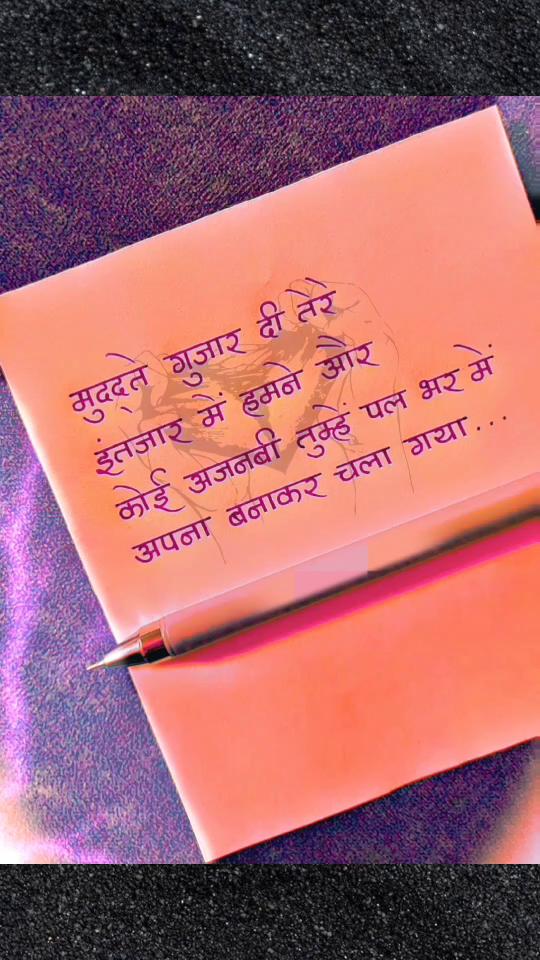 मुददते गुजार दी तेरे
इंतजार में हमने और
कोई अजनबी तुम्हें पल भर में
अपना बनाकर चला गया...